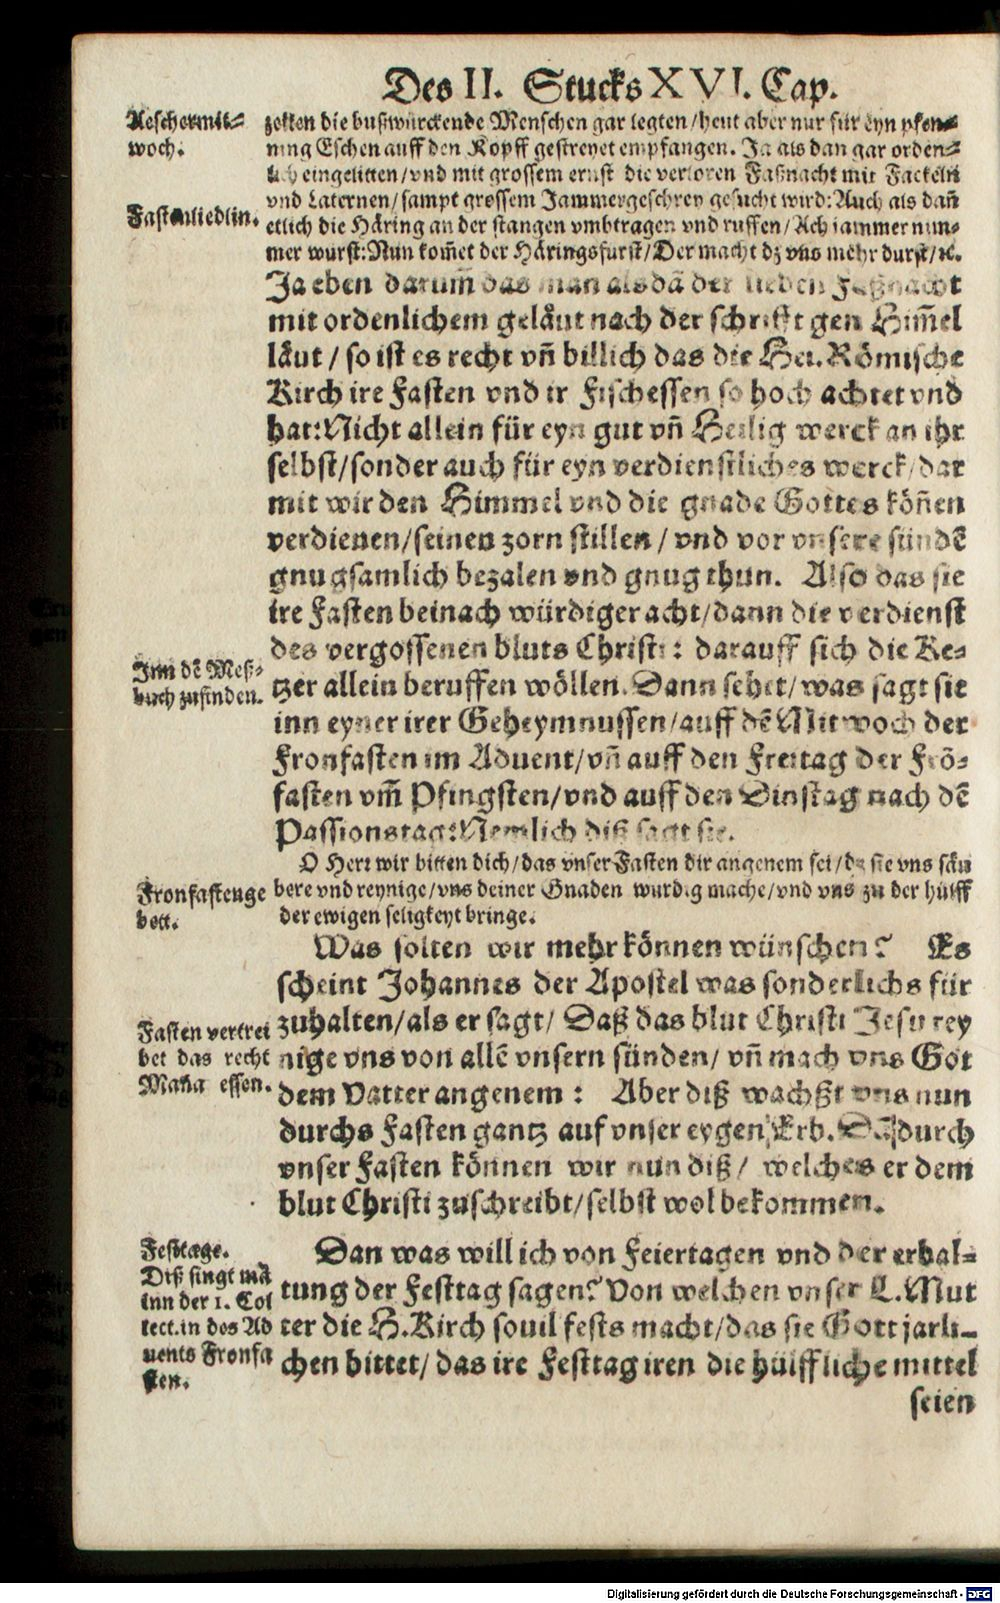 Des II. Stucks XVI. Cap.
Aeschermit=
woch.
zekken die bußwürckende Menschen gar legten/heut aber nur für eyn pfen=
ning Eschen auff den Kopff gestreyet empfangen. Ja als dan gar orden=
lich eingelitten/vnd mit grossem ernst die verloren Faßnacht mit Fackeln
vnd Laternen/sampt grossem Jammergeschrey gesucht wird: Auch als dañ
Fastenliedlin.
etlich die Häring an der stangen vmbtragen vnd ruffen/Ach jammer nun=
mer wurst: Nun kom̃et der Häringsfurst/Der macht dz vns mehr durst/ꝛc.
Ja eben darum̃ das man alsdã der lieben Faßnacht
mit ordenlichem geläut nach der schrifft gen Him̃el
läut/so ist es recht vñ billich das die Hei. Römische
Kirch ire Fasten vnd ir Fischessen so hoch achtet vnd
hat: Nicht allein für eyn gut vñ Heilig werck an ihr
selbst/sonder auch für eyn verdienstliches werck/dar
mit wir den Himmel vnd die gnade Gottes köñen
verdienen/seinen zorn stillen/vnd vor vnsere sündẽ
gnugsamlich bezalen vnd gnug thun. Also das sie
ire Fasten beinach würdiger acht/dann die verdienst
des vergossenen bluts Christi: darauff sich die Ke=
Inn dẽ Meß=
buch zufinden.
tzer allein beruffen wöllen. Dann sehet/was sagt sie
inn eyner irer Geheymnussen/auff dẽ Mitwoch der
Fronfasten im Aduent/vñ auff den Freitag der Frõ=
fasten vm̃ Pfingsten/vnd auff den Dinstag nach dẽ
Passionstag: Nemlich diß sagt sie.
O Herr wir bitten dich/das vnser Fasten dir angenem sei/dz sie vns säu
Fronfastenge
bett.
bere vnd reynige/vns deiner Gnaden wurdig mache/vnd vns zu der hülff
der ewigen seligkeyt bringe.
Was solten wir mehr können wünschen? Es
scheint Johannes der Apostel was sonderlichs für
Fasten vertrei
bet das recht
Mañа essen.
zuhalten/als er sagt/ Daß das blut Christi Jesu rey
nige vns von allẽ vnsern sünden/vñ mach vns Got
dem Vatter angenem: Aber diß wachßt vns nun
durchs Fasten gantz auf vnser eygen Erb. Dañ durch
vnser Fasten können wir nun diß/ welches er dem
blut Christi zuschreibt/selbst wol bekommen.
Festtæge.
Diß singt mã
inn der 1. Col
lect. in des Ad
uents Fronfa
sten.
Dan was will ich von Feiertagen vnd der erhal=
tung der Festtag sagen? Von welchen vnser L. Mut
ter die H. Kirch souil fests macht/das sie Gott jarli=
chen bittet/das ire Festtag iren die hülffliche mittel
seien
Digitalisierung gefördert durch die Deutsche Forschungsgemeinschaft - DFG